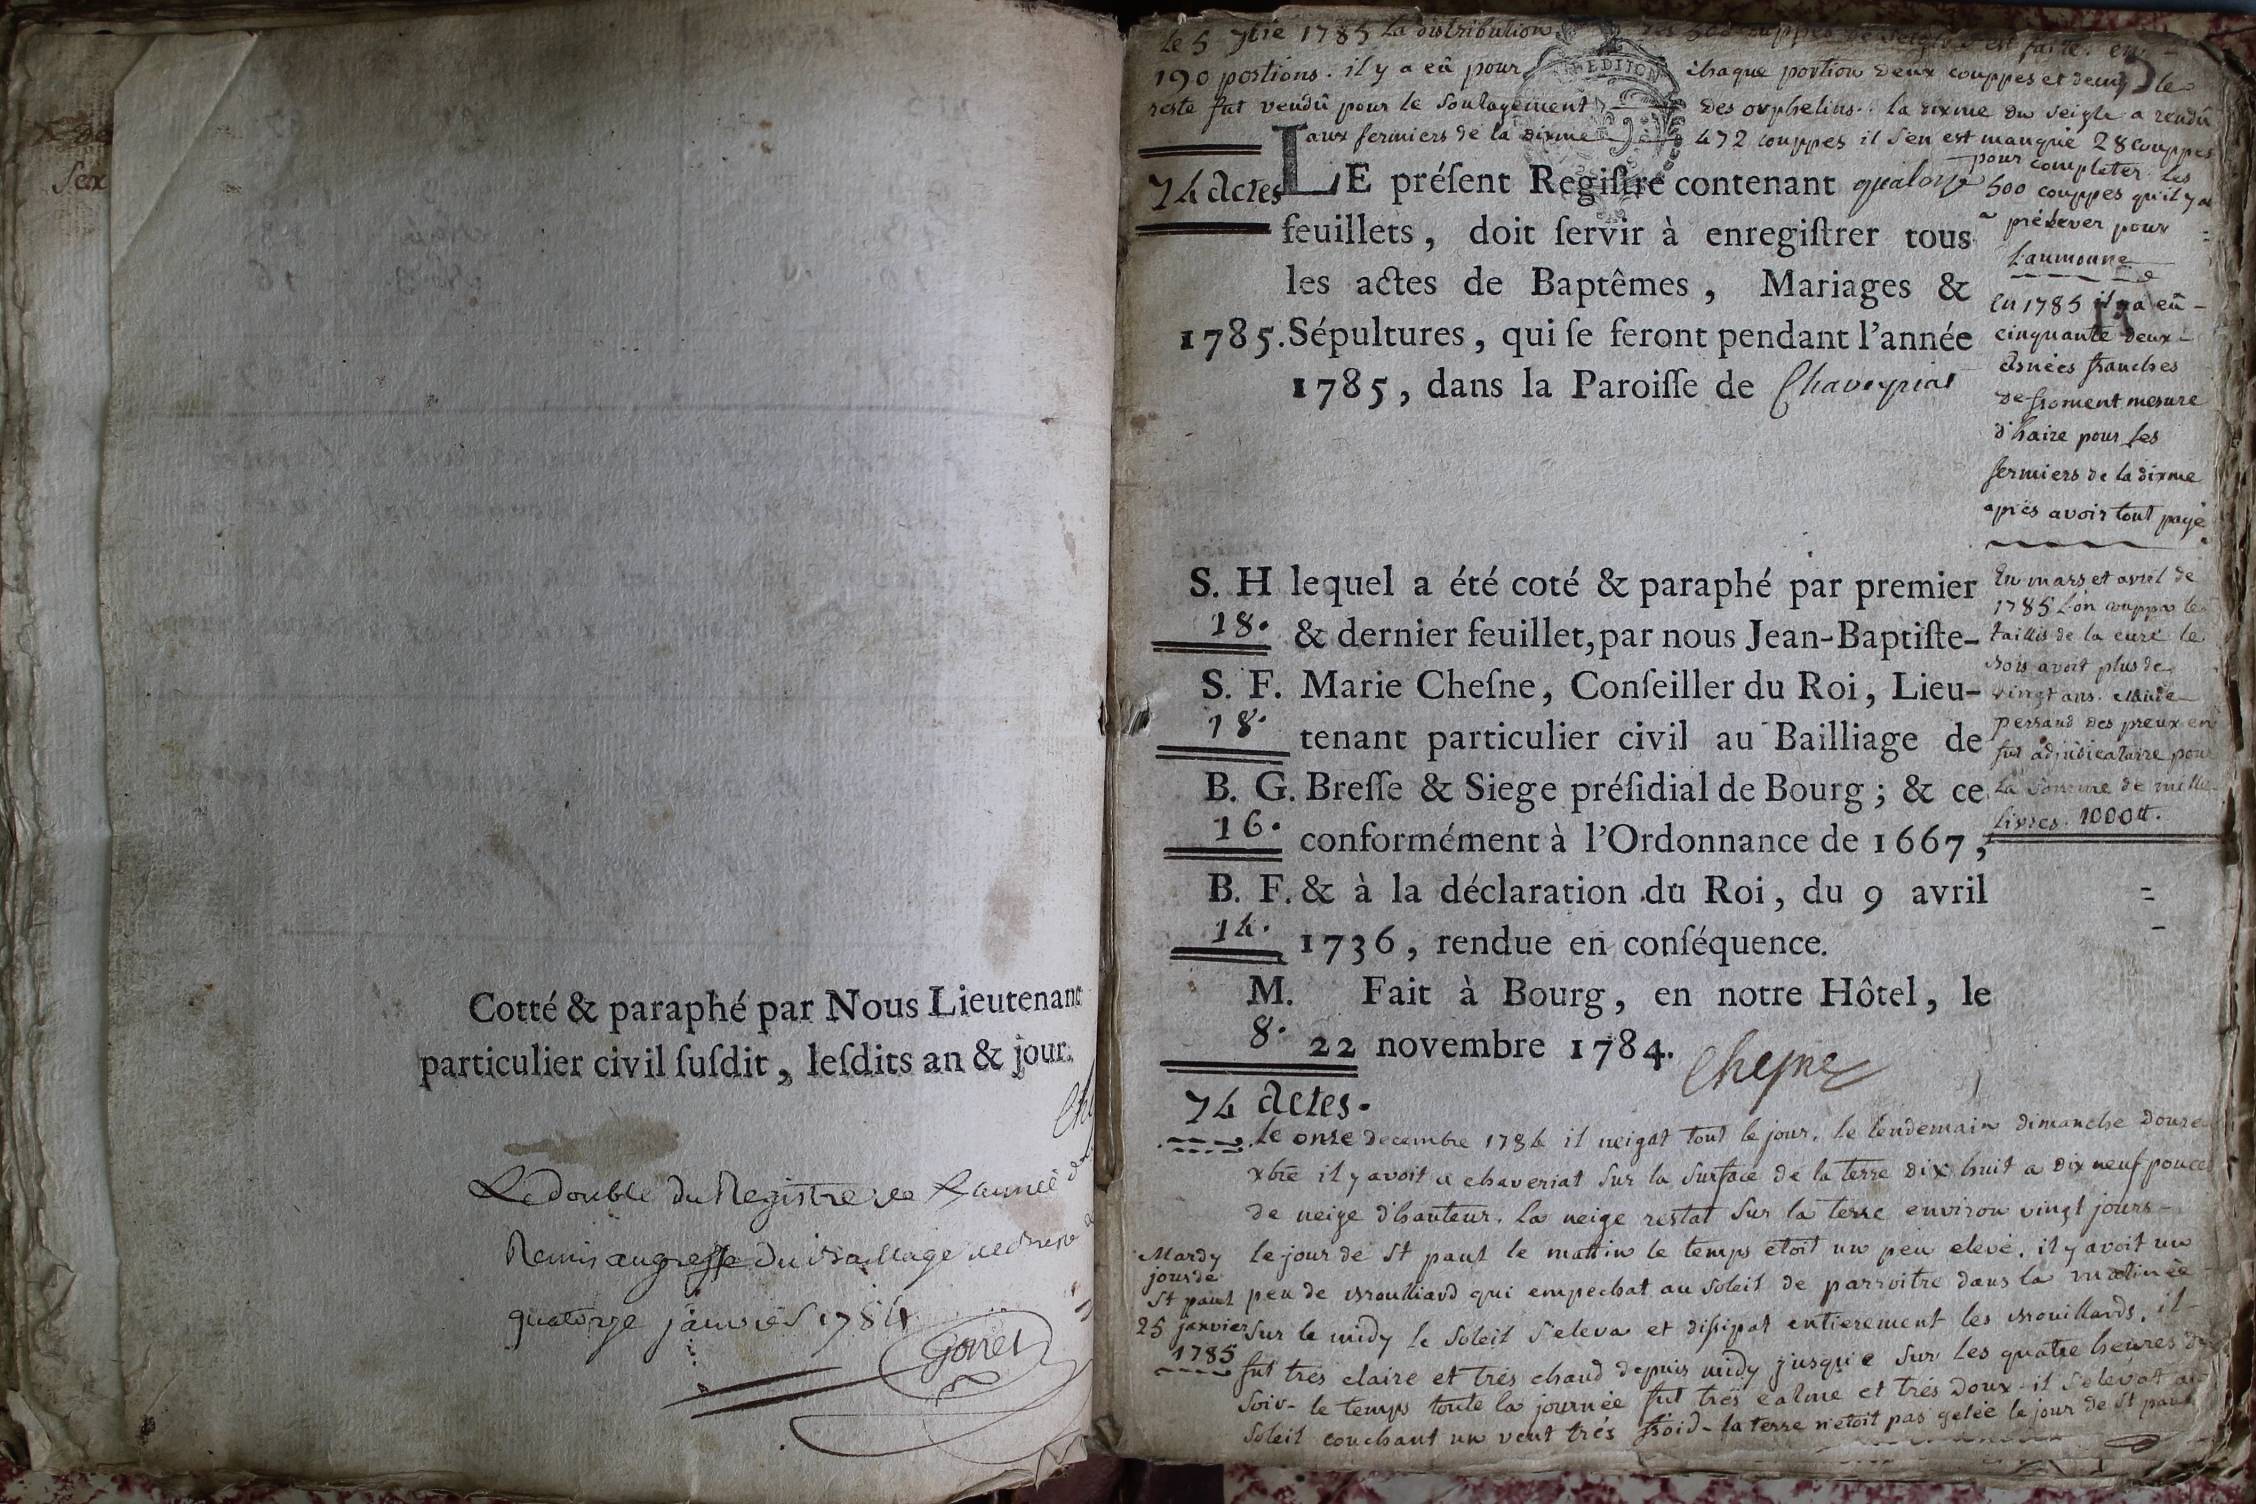 Cotté & paraphé par Nous Lieutenant
particulier civil ſuſdit, leſdits an & jour.
Le double du Registre de L'année
Remis au greffe du Bailliage de Bresse
quatorze janvier 1784
Goret
Le 5 7bre 1785 La distribution des 500 couppes de seigle s'est faite en
190 portions. il y a eû pour chaque portion deux couppes et demy le
reste fut vendû pour le soulagement des orphelins. la dixme du seigle a rendû
aux fermiers de la dixme 472 couppes il s'en est manqué 28 couppes
pour completer les
500 couppes qu'il y a
a prélever pour
L'aumoune
74 actes
LE préſent Regiſtre contenant quatorze
feuillets, doit ſervir à enregiſtrer tous
les actes de Baptêmes, Mariages &
1785. Sépultures, qui ſe feront pendant l'année
1785, dans la Paroiſſe de Chaveyriat
En 1785 il y a eû
cinquante deux
asnées franches
de froment mesure
d'haire pour les
fermiers de la dixme
après avoir tout payé
S. H lequel a été coté & paraphé par premier
18. & dernier feuillet, par nous Jean-Baptiſte-
S. F. Marie Cheſne, Conſeiller du Roi, Lieu-
18. tenant particulier civil au Bailliage de
B. G. Breſſe & Siege préſidial de Bourg; & ce
16. conformément à l'Ordonnance de 1667,
B. F. & à la déclaration du Roi, du 9 avril
14. 1736, rendue en conſéquence.
M. Fait à Bourg, en notre Hôtel, le
8. 22 novembre 1784.
Chesne
74 actes.
En mars et avril de
1785 l'on couppa le
taillis de la cure le
bois avoit plus de
vingt ans. claude
persaud des preux en
fut adjudicataire pour
La somme de mille
Livres. 1000 tt.
Le onze decembre 1784 il neigat tout le jour. le lendemain dimanche douze
xbre il y avoit a chaveriat sur la surface de la terre dix huit a dix neuf pouces
de neige d'hauteur. la neige restat sur la terre environ vingt jours
Mardy
jour de
St paul
25 janvier
1785
le jour de St paul le mattin le temps etoit un peu elevé. il y avoit un
peu de brouilliard qui empechat au soleil de parroitre dans la matinée
sur le midy le soleil s'eleva et disipat entierement les brouillards. il
fut tres claire et trés chaud depuis midy jusqu'e sur les quatre heures du
soir. le temps toute la journée fut tres calme et trés doux. il s'elevat au
soleil couchant un vent trés froid. la terre n'etoit pas gelée le jour de St paul